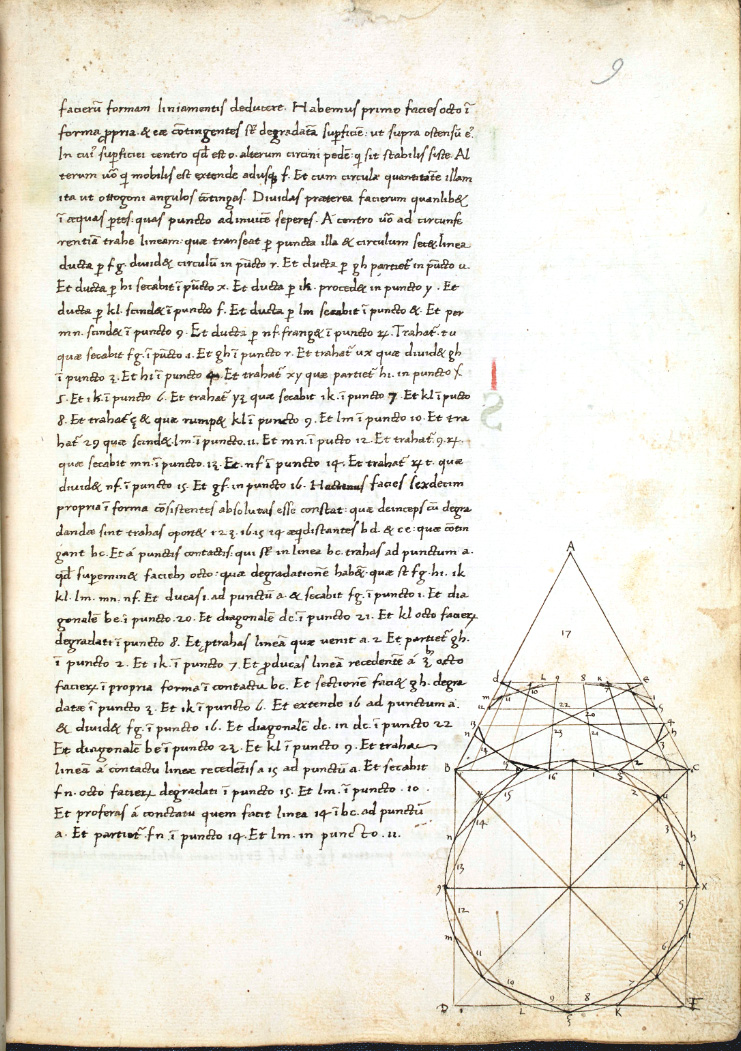 9
facierū formam liniamentis deducere. Habemus primo facies octo ī
forma ꝓpria & eæ cōtingentes sēp̄ degradatā sup̄ficiē: ut supra ostensū ē.
In cuiꝰ sup̄ficiei centro qd̄ est o. alterum circini pedē qͥ sit stabilis siste. Al
terum uō qͥ mobilis est extende adusq; f. Et cum circulæ quantitatē illam
ita ut ottogoni angulos cōtingas. Diuidas præterea facierum quanlib&
ī æquas ꝑtes: quas puncto adinuicē seperes. A centro uō ad circunfe
rentiā trahe lineam: quæ transeat ꝑ puncta illa & circulum sec&. linea
ducta ꝑ fg. diuid& circulū in pūcto r. Et ducta ꝑ gh partiet̄ in pūcto u.
Et ducta ꝑ hi secabit ī pūcto x. Et ducta ꝑ ik. proced& in puncto y. Et
ducta ꝑ kl. scind& ī puncto ſ. Et ducta ꝑ lm secabit ī puncto &. Et per
mn. scind& ī puncto 9. Et ducta ꝑ nf. frang& ī puncto ꝝ. Trahat̄. tu
quæ secabit fg. ī pūcto 1. Et gh ī puncto r. Et trahat̄ ux quæ diuid& gh
ī puncto 3. Et hi ī puncto 4. Et trahat̄ xy quæ partiet̄ hi. in puncto
5. Et ik ī puncto 6. Et trahat̄ yz quæ secabit ik. ī puncto 7. Et kl ī pūcto
8. Et trahat̄ ç& quæ rump& kl ī puncto 9. Et lm ī puncto 10. Et tra
hat̄ 29 quæ scind& .lm. ī puncto. 11. Et mn. ī pūcto 12. Et trahat̄ .9.ꝝ.
quæ secabit mn. ī puncto. 13. Et. nf ī puncto 14. Et trahat̄ ꝝ t. quæ
diuid& nf. ī puncto 15. Et gf. in puncto 16. Hactenus facies sexdecim
propria ī forma cōsistentes absolutas esse constat: quæ deinceps cū degra
dandæ sint trahas oport& 1 2 3. 16 15 14 æq̄distantes bd. & ce: quæ cōtin
gant bc. Et á punctis contactis. qui sūt in linea bc. trahas ad punctum a.
qd̄ supemin& facieb; octo: quæ degradationē habēt. quæ st̄ fg. hi. ik
kl. lm. mn. nf. Et ducas 1. ad punctū a. & secabit fg. ī puncto 1. Et dia
gonalē be. ī puncto. 20. Et diagonalē dc. ī puncto 21. Et kl octo facieꝝ
degradati ī puncto 8. Et ꝓtrahas lineā quæ uenit a. 2 Et partiet̄ gh.
ī puncto 2. Et ik. ī puncto 7. Et ꝓducas lineā recedentē á 3 octo
facieꝝ ī propria forma ī contactu bc. Et sectionē faci& gh. degra
datæ ī puncto 3. Et ik ī puncto 6. Et extende 16 ad punctum a.
& diuid& fg. ī puncto 16. Et diagonalē dc. in dc. ī puncto 22
Et diagonalē be ī puncto 23. Et kl ī puncto 9. Et trahas
lineā á contactu lineæ recedētis a 15 ad punctū a. Et secabit
fn. octo facieꝝ degradati ī puncto 15. Et lm. ī puncto. 10.
Et proferas á cōtactu quem facit linea 14 ī bc. ad punctū
a. Et partiet̄ .fn. ī puncto 14. Et lm. in puncto. 11.
A
17
d L 9 8 K e
m 11 10 7 i
12 22 5
20
n 23 21 4 h
13 3
B 16 1 2 C
15 2 u
14 3
n h
13 4
9 X
12 5
m i
11 6
10 9 8 7
D L ſ K E